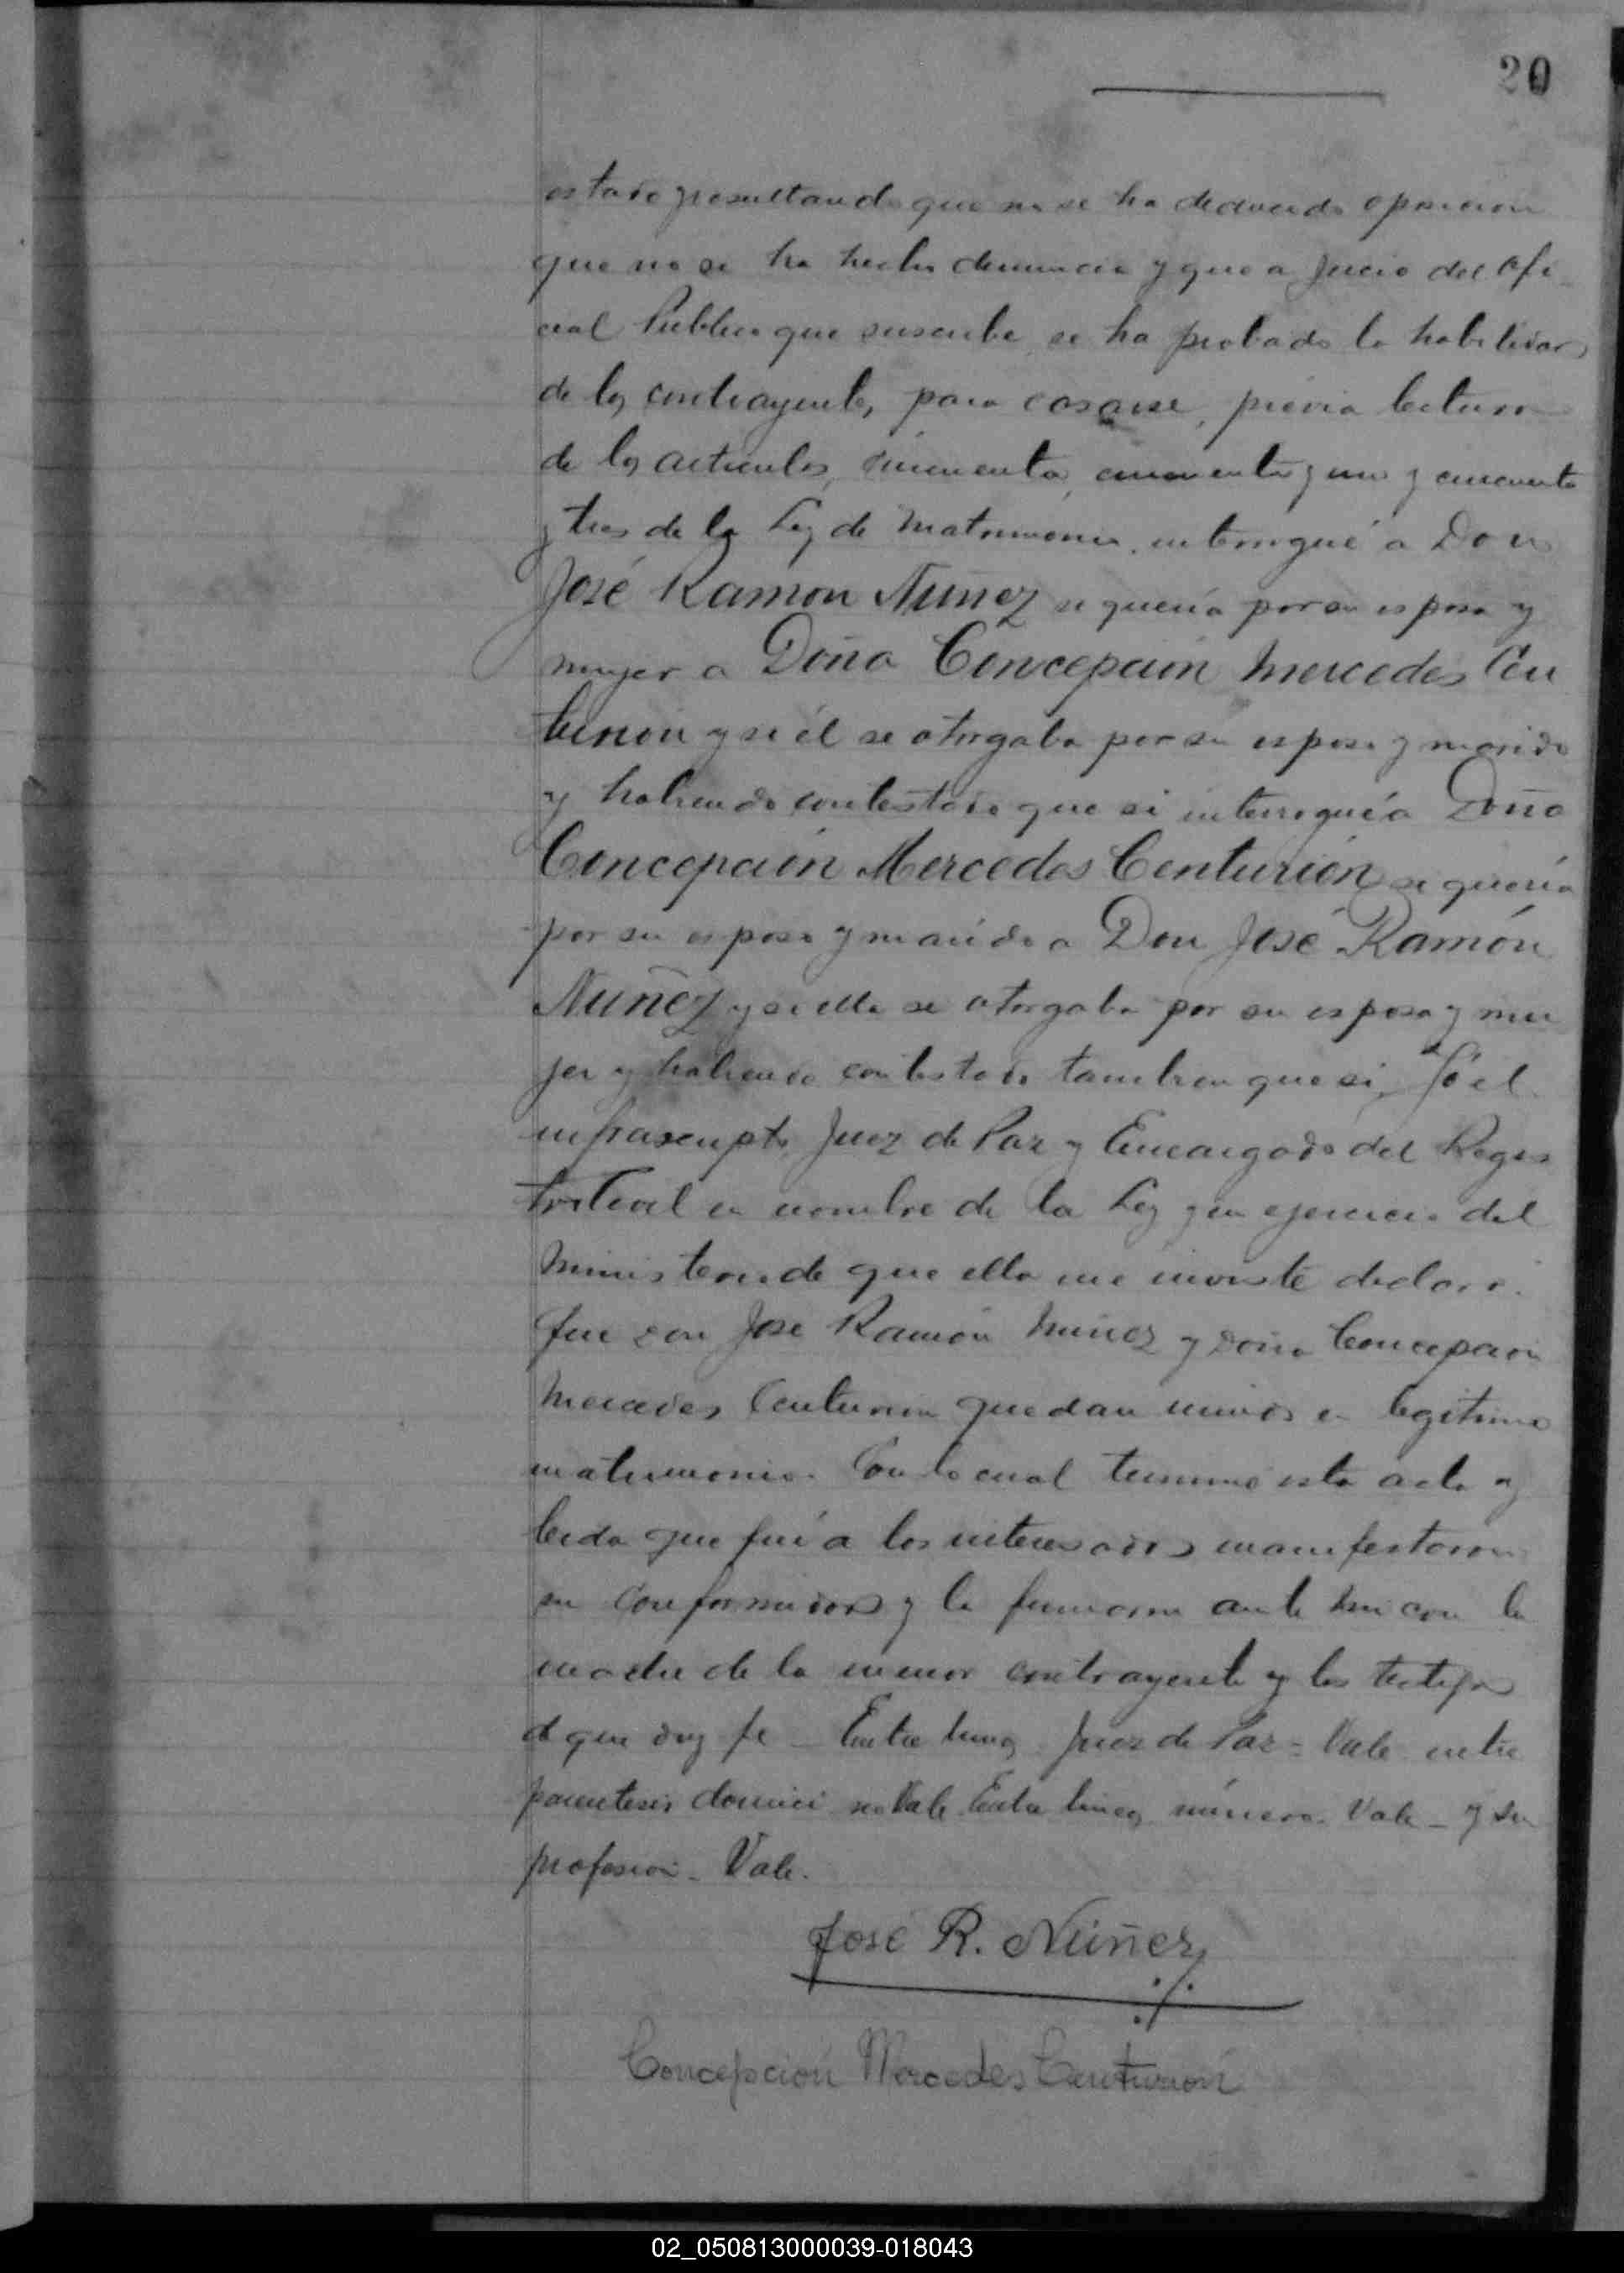 20
estado y resultando que no se ha deducido oposicion
que no se ha hecho denuncia y que a juicio del Ofi-
cial Público que suscribe se ha probado la habilidad
de los contrayentes para casarse, prévia lectura
de los artículos, cincuenta, cincuenta y uno y cincuenta
y tres de la Ley de Matrimonio, interrogué a Don
José Ramón Nuñez si quería por su esposa y
mujer a Doña Concepción Mercedes Cen
turión y si él se otorgaba por su esposo y marido
y habiendo contestado que si interrogué a Doña
Concepción Mercedes Centurión si quería
por su esposo y marido a Don José Ramón
Nuñez y si ella se otorgaba por su esposa y mu
jer y habiendo contestado tambien que si, Yó el
infrascripto Juez de Paz y Encargado del Regis
tro Civil en nombre de la Ley y en ejercicio del
Ministerio de que ella me inviste declaro:
Que don José Ramón Nuñez y doña Concepción
Mercedes Centurión quedan unidos en legitimo
matrimonio. Con lo cual terminó esta acta y
leida que fué a los interesados manifestaron
su conformidad y la firmaron ante mi con la
madre de la menor contrayente y los testigos
de que doy fe - Entre lineas Juez de Paz = Vale entre
parentesis domici no Vale Entre lineas número. Vale - y su
profesión - Vale.
José R. Núñez
Concepción Mercedes Centurión
02_050813000039-018043